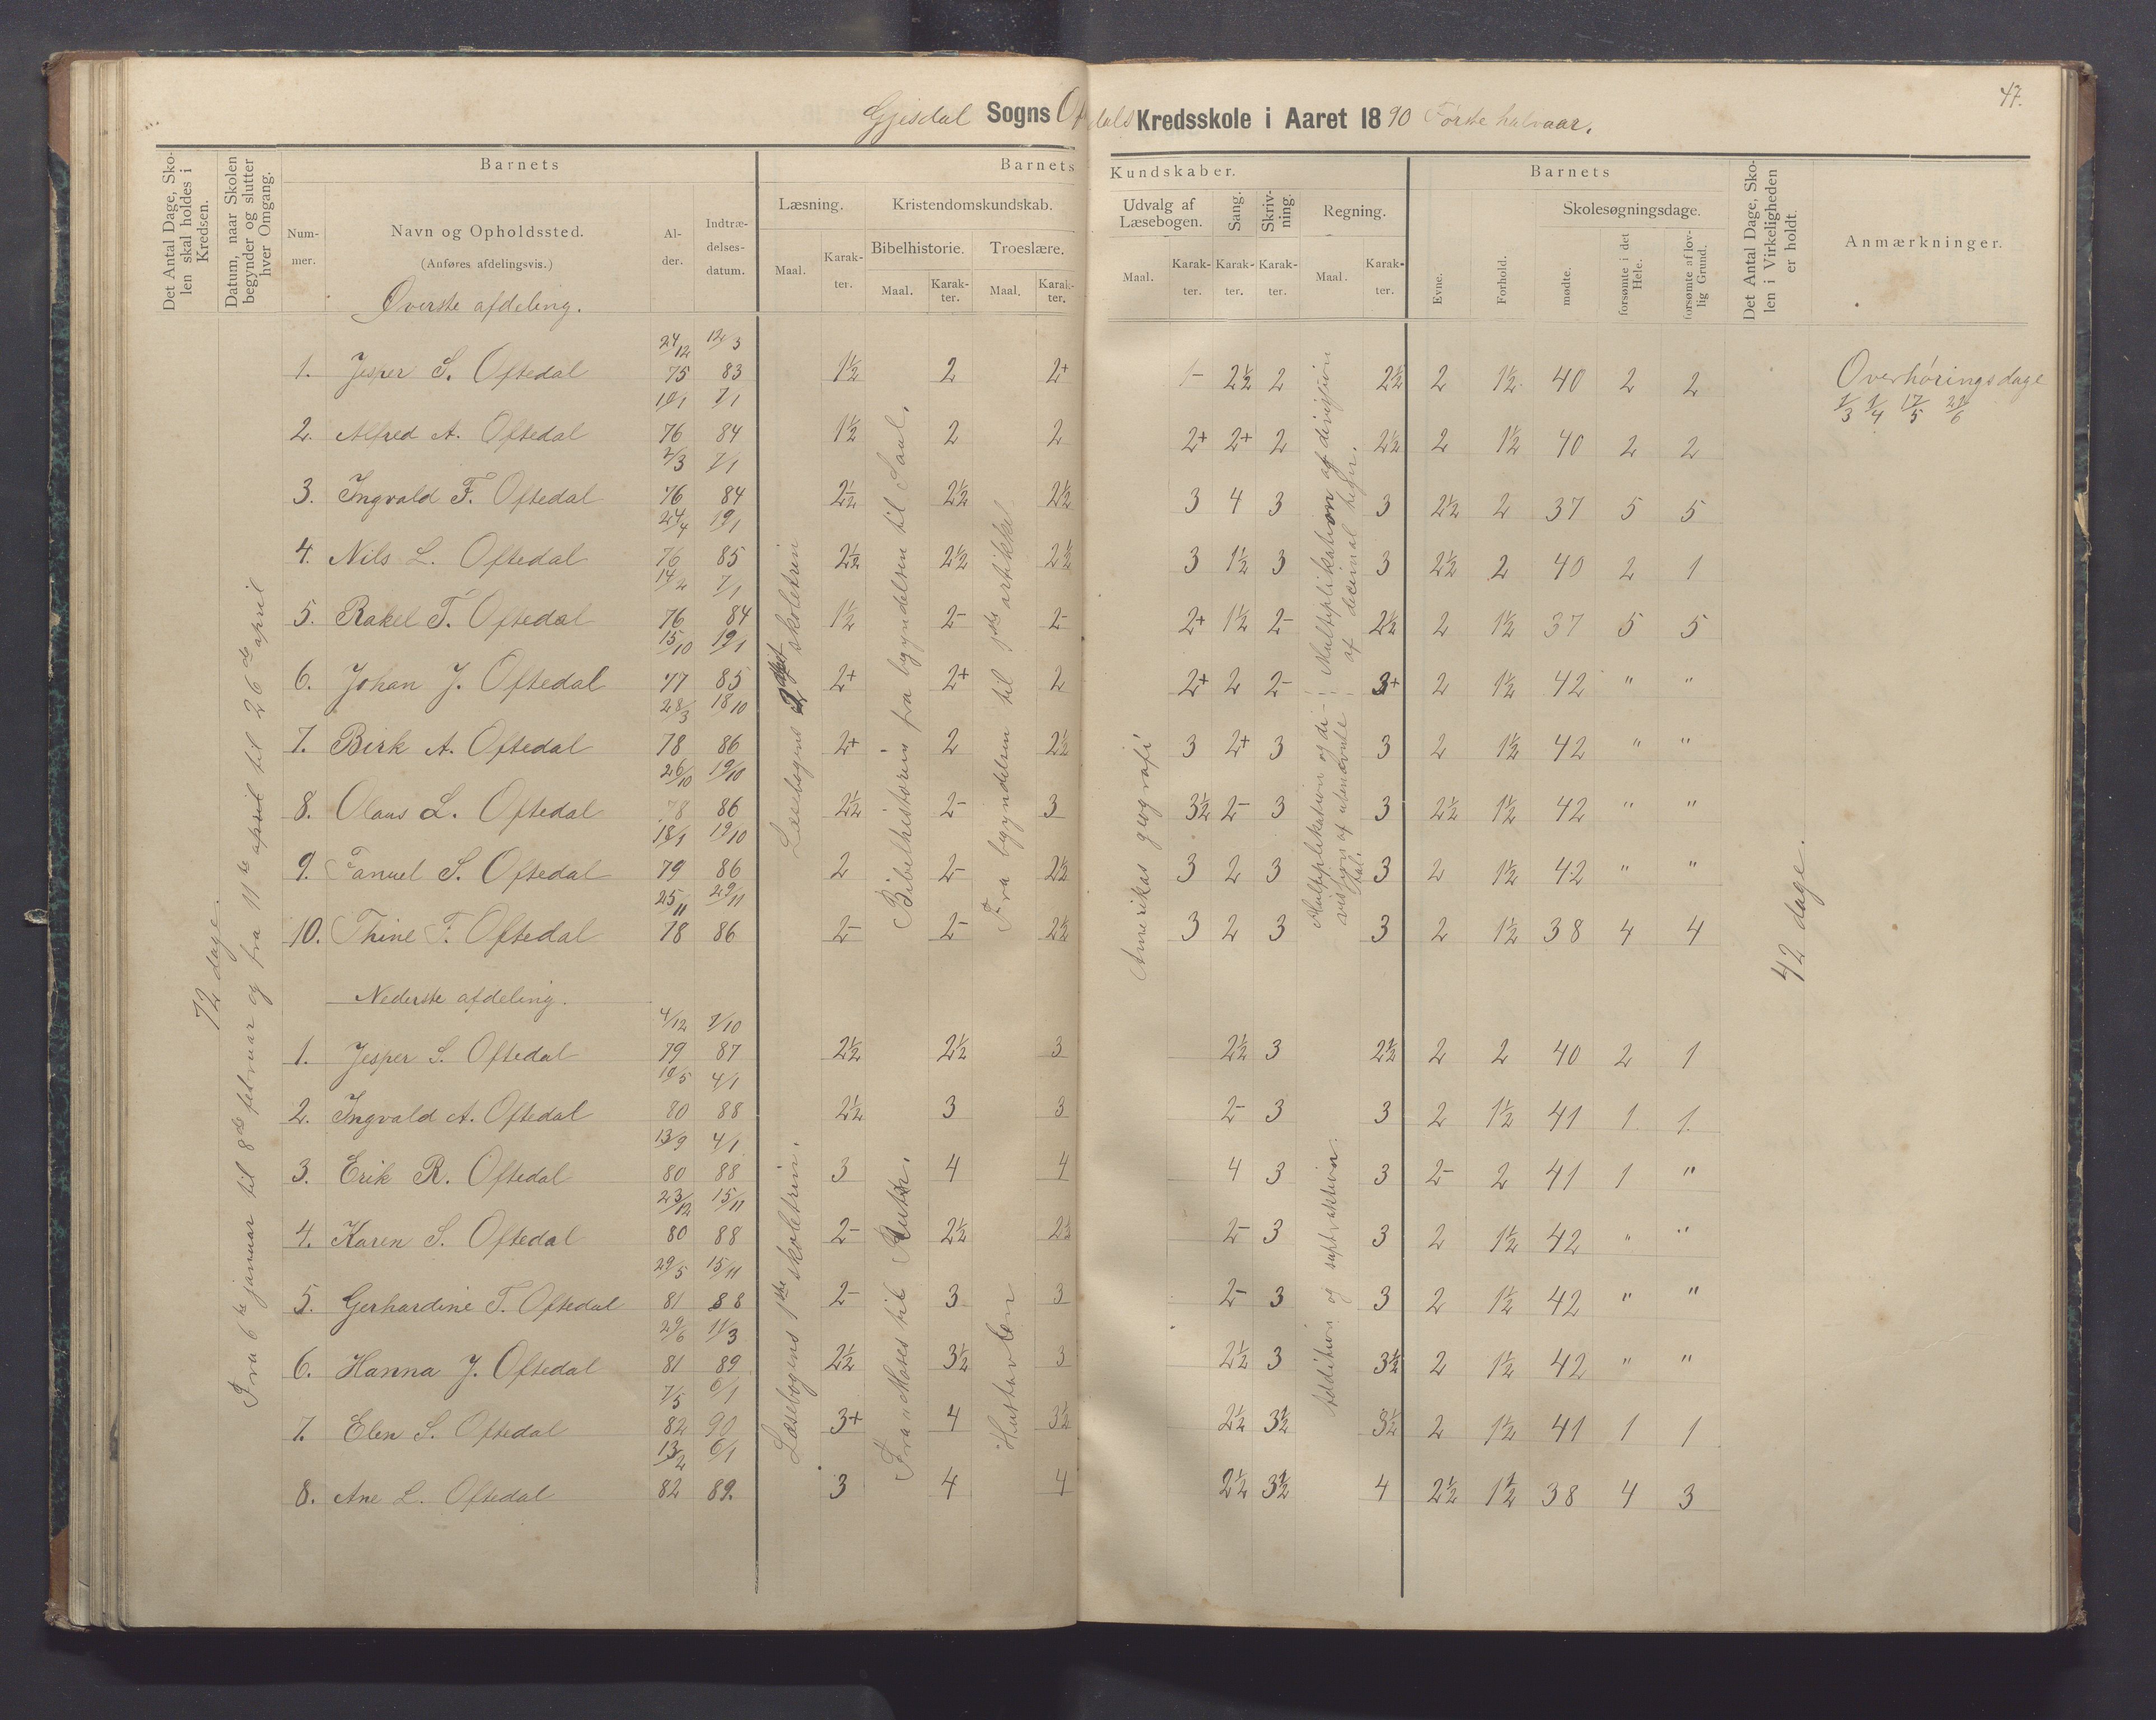 47.
Gjesdal Sogns Oftedals Kredsskole i Aaret 1890 Første halvaar.
Det Antal Dage, Skolen skal holdes i Kredsen.
Datum, naar Skolen begynder og slutter hver Omgang.
Barnets
Nummer.
Navn og Opholdssted.
(Anføres afdelingsvis.)
Alder.
Indtrædelsesdatum.
Barnets Kundskaber.
Læsning.
Maal. Karakter.
Kristendomskundskab.
Bibelhistorie.
Maal. Karakter.
Troeslære.
Maal. Karakter.
Udvalg af Læsebogen.
Maal. Karakter.
Sang.
Karakter.
Skrivning.
Karakter.
Regning.
Maal. Karakter.
Barnets
Evne.
Forhold.
Skolesøgningsdage.
mødte.
forsømte i det Hele.
forsømte af lovlig Grund.
Det Antal Dage, Skolen i Virkeligheden er holdt.
Anmærkninger.
Øverste afdeling.
24/12 12/3
1. Jesper S. Oftedal 75 83 1½ 2 2+ 1- 2½ 2 2½ 2 1½ 40 2 2
Overhøringsdage
1/3 1/4 17/5 21/6
10/1 7/1
2. Alfred A. Oftedal 76 84 1½ 2 2 2+ 2+ 2 2½ 2 1½ 40 2 2
2/3 7/1
3. Ingvald F. Oftedal 76 84 2½ 2½ 2½ 3 4 3 3 2½ 2 37 5 5
24/4 19/1
4. Nils L. Oftedal 76 85 2½ 2½ 2½ 3 1½ 3 3 2½ 2 40 2 1
14/2 7/1
5. Rakel T. Oftedal 76 84 1½ 2- 2- 2+ 1½ 2- 2½ 2 1½ 37 5 5
15/10 19/1
6. Johan J. Oftedal 77 85 2+ 2+ 2 2+ 2 2- 3+ 2 1½ 42 " "
28/3 18/10
7. Birk A. Oftedal 78 86 2+ 2 2½ 3 2+ 3 3 2 1½ 42 " "
26/10 19/10
8. Olaus L. Oftedal 78 86 2½ 2- 3 3½ 2- 3 3 2½ 1½ 42 " "
18/1 19/10
9. Fanuel S. Oftedal 79 86 2 2- 2½ 3 2 3 3 2 1½ 42 " "
25/11 29/11
10. Thine F. Oftedal 78 86 2- 2- 2½ 3 2 3 3 2 1½ 38 4 4
Nederste afdeling.
4/12 7/10
1. Jesper S. Oftedal 79 87 2½ 2½ 3 2½ 3 2½ 2 2 40 2 1
19/5 4/1
2. Ingvald A. Oftedal 80 88 2½ 3 3 2- 3 3 2 1½ 41 1 1
13/9 4/1
3. Erik R. Oftedal 80 88 3 4 4 4 3 3 2- 2 41 1 "
23/12 15/11
4. Karen S. Oftedal 80 88 2- 2½ 2½ 2- 3 3 2 1½ 42 " "
29/5 15/11
5. Gerhardine T. Oftedal 81 88 2- 3 3 2- 3 3 2 1½ 42 " "
29/6 11/3
6. Hanna J. Oftedal 81 89 2½ 3½ 3 2½ 3 3½ 2 1½ 42 " "
7/5 6/1
7. Elen S. Oftedal 82 90 3+ 4 3½ 2½ 3½ 3½ 2 1½ 41 1 1
13/2 6/1
8. Ane L. Oftedal 82 89. 3 4 4 2½ 3½ 4 2½ 1½ 38 4 3
72 dage.
Fra 6te januar til 8de februar og fra 11te april til 26de april
Læsebogens skoletrin
Bibelhistorien fra begyndelsen til Saul.
Fra begyndelsen til artikkel.
Amerikas geografi
Multiplikation og division af ubenævnte tal.
Multiplikation og division af decimal
Læsebogens 1ste skoletrin.
Fra Moses til Ruth.
Hustavlen
Addition og suptraktion.
42 dage.